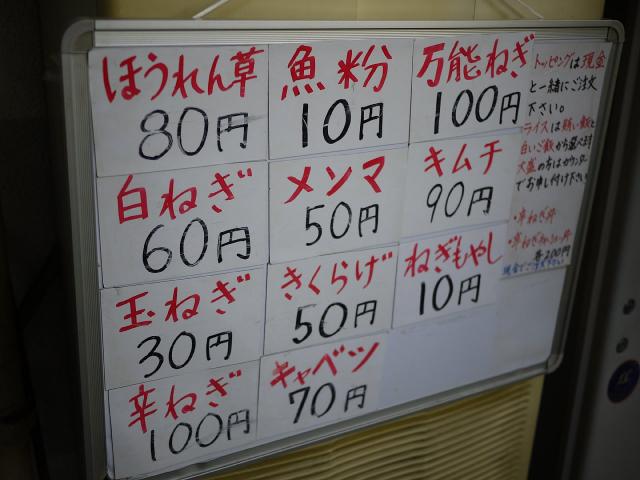 ほうれん草
80円
魚粉
10円
万能ねぎ
100円
白ねぎ
60円
メンマ
50円
キムチ
90円
玉ねぎ
30円
きくらげ
50円
ねぎもやし
10円
辛ねぎ
100円
キャベツ
70円
トッピングは現金
と一緒にご注文
下さい。
ライスは賄い飯と
白いご飯から選べます
大盛の方はカウンター
でお申し付け下さい
・辛ねぎ丼
各200円